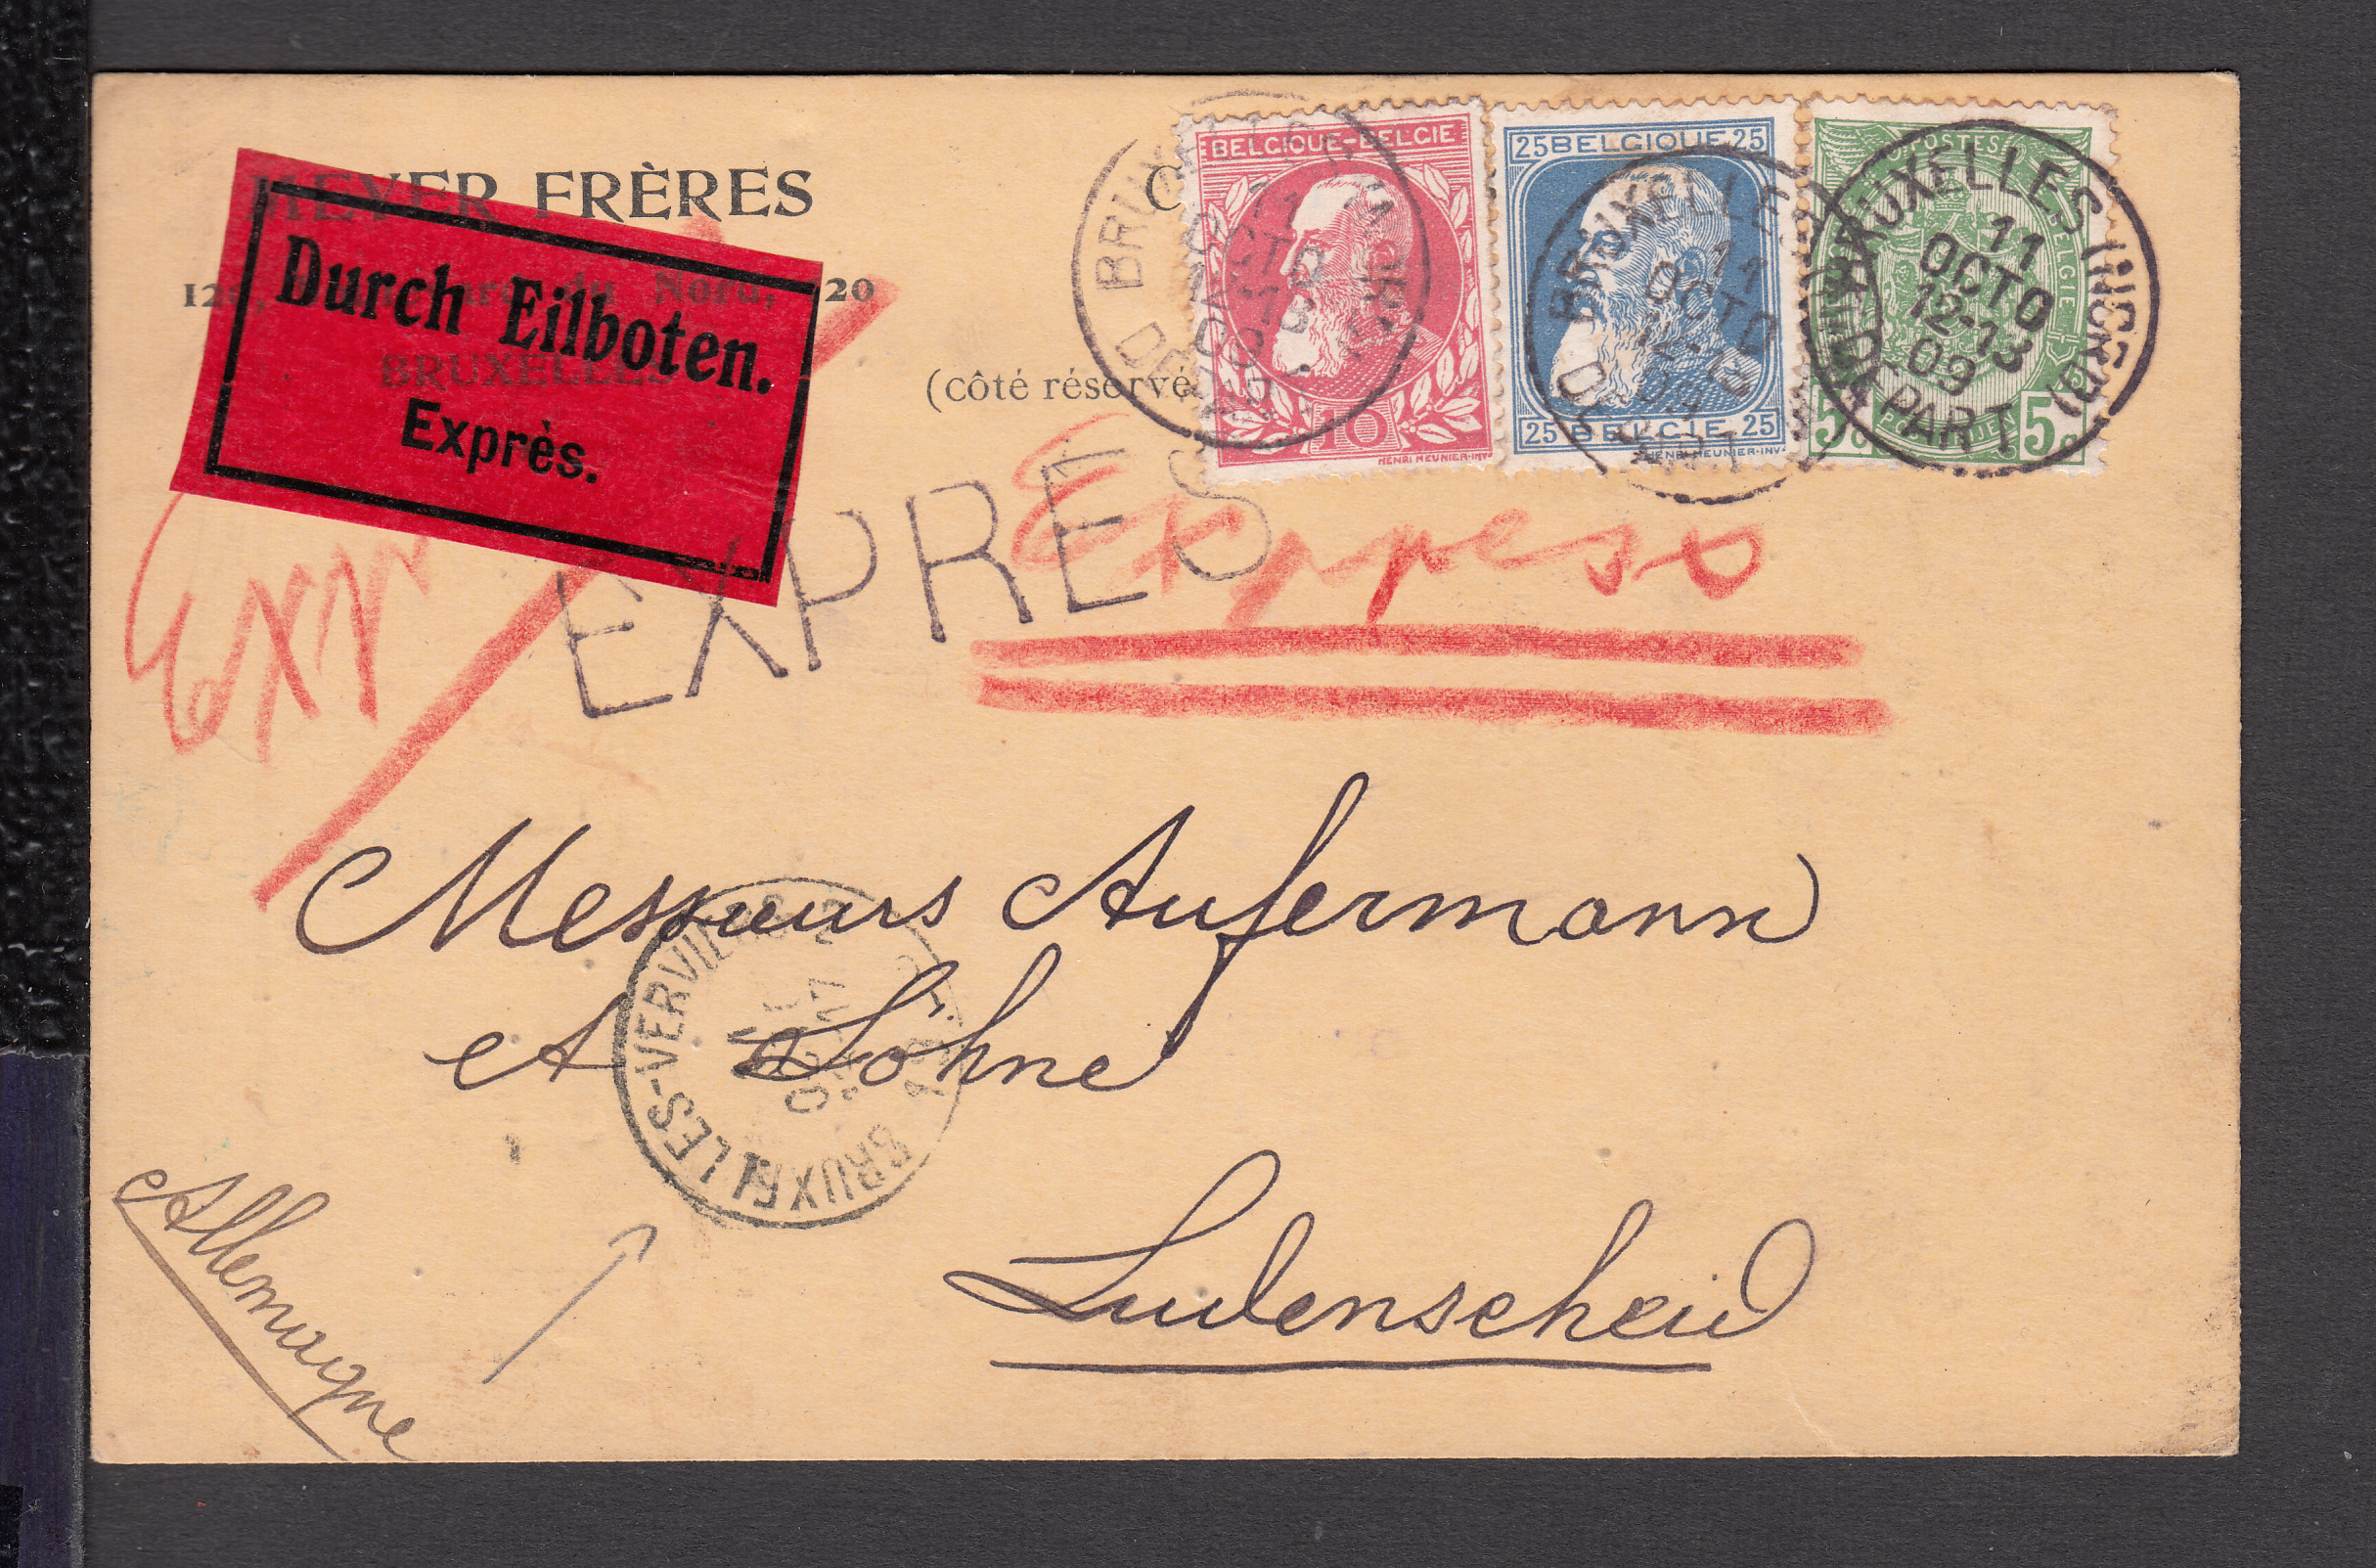 MEYER FRÈRES
120, du Nord, 120
BRUXELLES
(côté réservé
Durch Eilboten.
Exprès.
EXPRÈS
Express
BELGIQUE-BELGIE
10
HENRI MEUNIER-INV
25 BELGIQUE 25
25 BELGIE 25
HENRI MEUNIER-INV
POSTES
BELGIE
5c 5c
BRUXELLES
11
OCTO
12-13
09
DEPART
BRUXELLES
11
OCTO
12-13
09
DEPART
BRUXELLES (NORD)
11
OCTO
12-13
09
DEPART
Messieurs Aufermann
et Söhne
BRUXELLES-VERVIERS
Ludenscheid
Allemagne